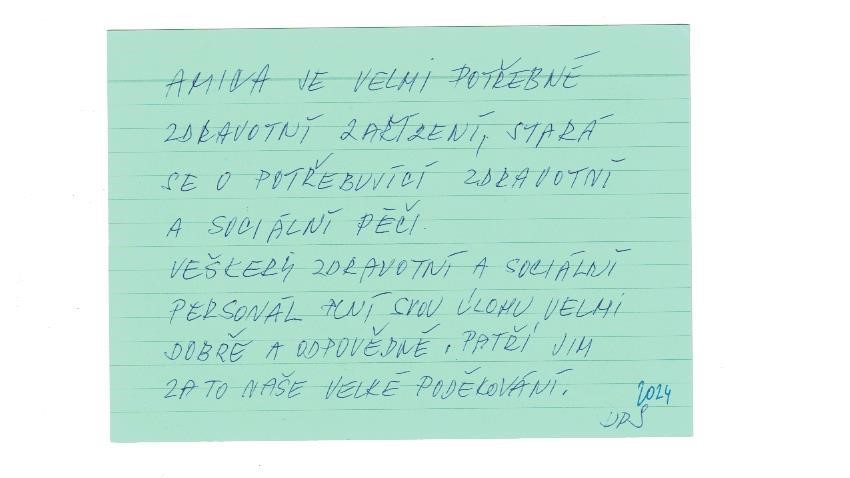 AMINA JE VELMI POTŘEBNÉ
ZDRAVOTNÍ ZAŘÍZENÍ, STARÁ
SE O POTŘEBUJÍCÍ ZDRAVOTNÍ
A SOCIÁLNÍ PÉČI.
VEŠKERÝ ZDRAVOTNÍ A SOCIÁLNÍ
PERSONÁL PLNÍ SVOU ÚLOHU VELMI
DOBŘE A ODPOVĚDNĚ. PATŘÍ JIM
ZA TO NAŠE VELKÉ PODĚKOVÁNÍ.
2024